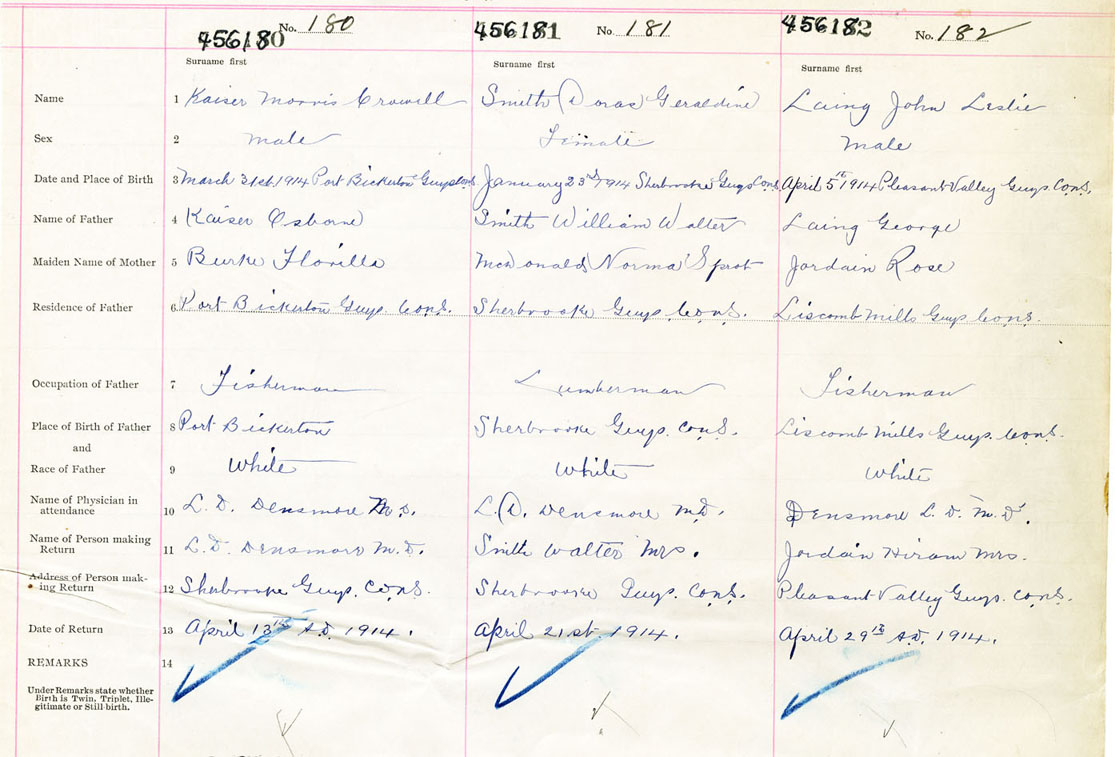 456180 No. 180 456181 No. 181 456182 No. 182
Surname first Surname first Surname first
Name 1 Kaiser Morris Crowell Smith Doras Geraldine Laing John Leslie
Sex 2 male Female Male
Date and Place of Birth 3 March 31st 1914 Port Bickerton Guys Cons January 23rd 1914 Sherbrooke Guys Cons April 5th 1914 Pleasant Valley Guys. Cons.
Name of Father 4 Kaiser Osborne Smith William Walter Laing George
Maiden Name of Mother 5 Burke Florilla McDonald Norma Sprot Jordain Rose
Residence of Father 6 Port Bickerton Guys. Cons. Sherbrooke Guys. Cons. Liscomb Mills Guys. Cons.
Occupation of Father 7 Fisherman Lumberman Fisherman
Place of Birth of Father 8 Port Bickerton Sherbrooke Guys. Cons. Liscomb Mills Guys. Cons.
and
Race of Father 9 White White White
Name of Physician in
attendance 10 L. D. Densmore M.D. L. D. Densmore M.D. Densmore L. D. M.D.
Name of Person making
Return 11 L. D. Densmore M.D. Smith Walter Mrs. Jordain Hiram Mrs.
Address of Person mak-
ing Return 12 Sherbrooke Guys. Cons. Sherbrooke Guys. Cons. Pleasant Valley Guys. Cons.
Date of Return 13 April 13th A.D. 1914. April 21st 1914. April 29th A.D. 1914.
REMARKS 14
Under Remarks state whether
Birth is Twin, Triplet, Ille-
gitimate or Still-birth.